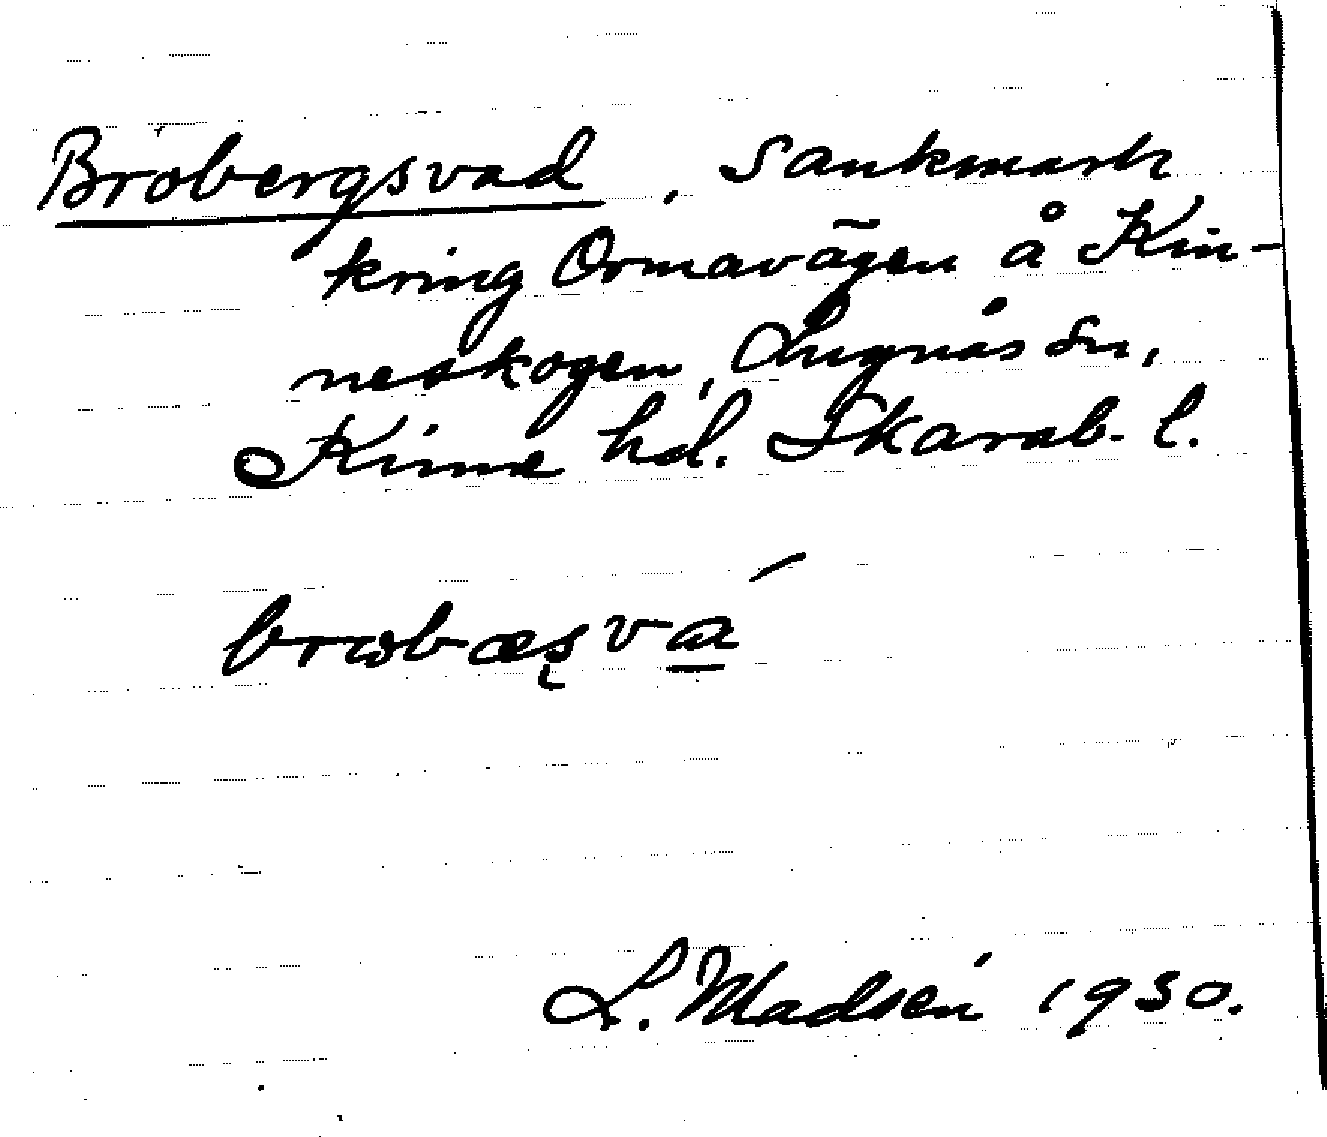 Brobergsvad, Sankmark
kring Ormavägen å Kin-
neskogen, Lugnås sn,
Kinne hd. Skarab. l.
brωbæsvá
L. Madsén 1930.